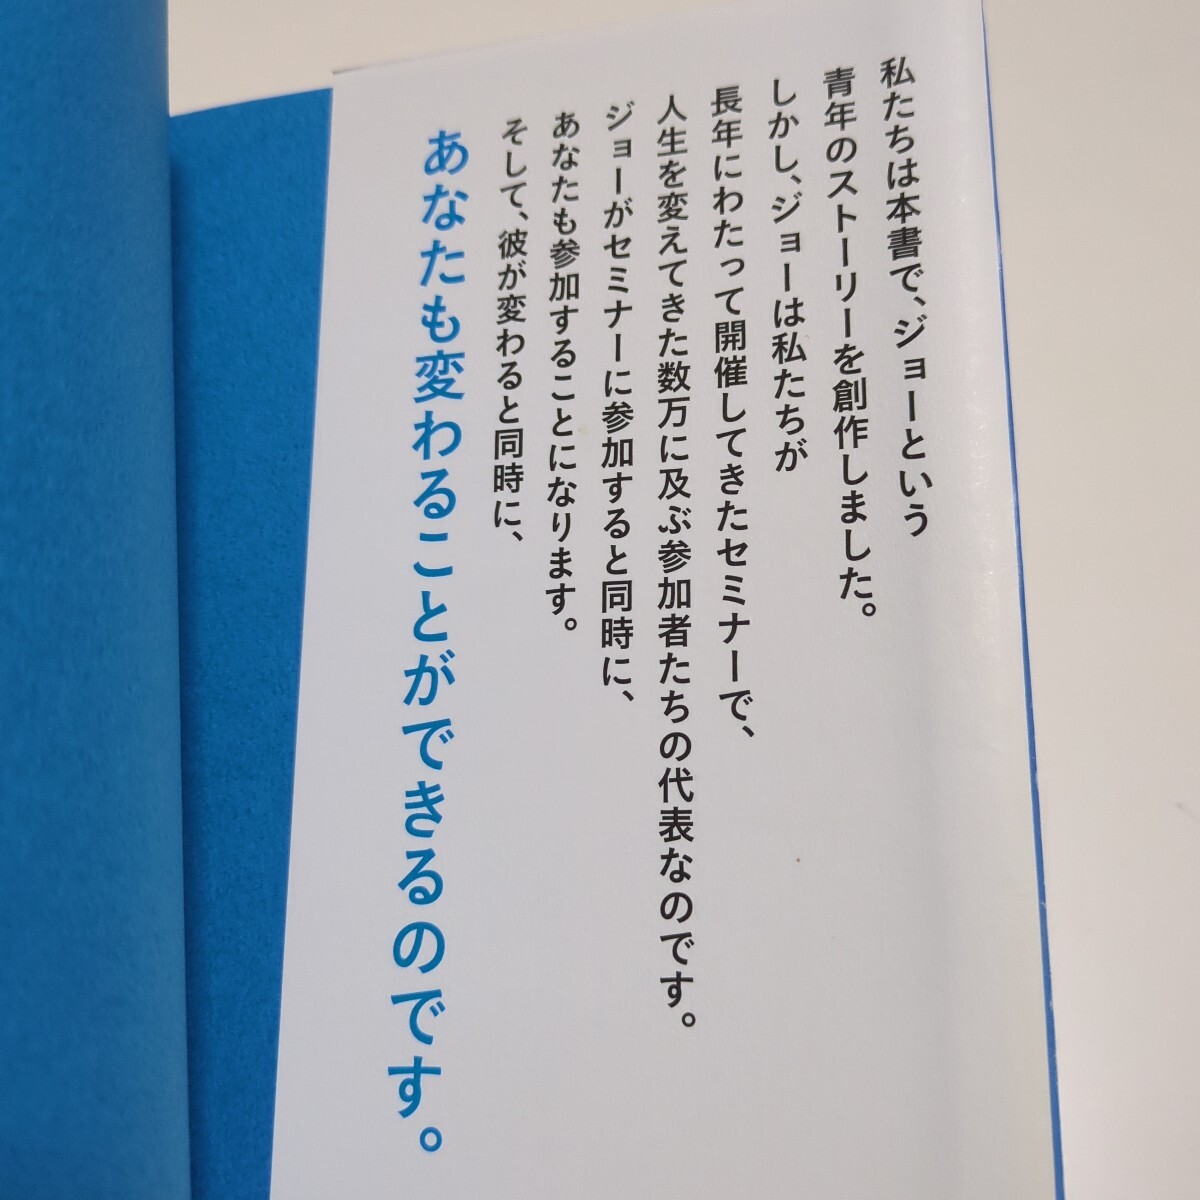 私たちは本書で、ジョーという
青年のストーリーを創作しました。
しかし、ジョーは私たちが
長年にわたって開催してきたセミナーで、
人生を変えてきた数万に及ぶ参加者たちの代表なのです。
ジョーがセミナーに参加すると同時に、
あなたも参加することになります。
そして、彼が変わると同時に、
あなたも変わることができるのです。